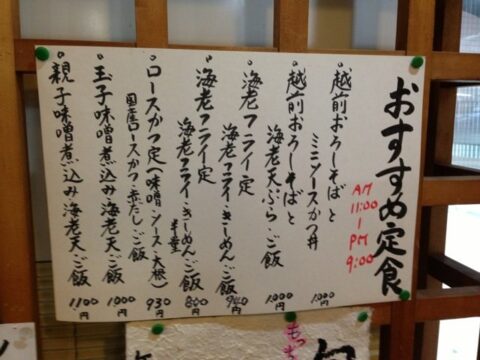 おすすめ定食
AM
11:00
|
PM
9:00
・越前おろしそばと
ミニソースかつ丼
1000円
・越前おろしそばと
海老天ぷら、ご飯
1000円
・海老フライ定
海老フライ・きしめん、ご飯
940円
・海老フライ定
海老フライ・きしめん、ご飯
半量
800円
・ロースかつ定(味噌・ソース・大根)
国産ロースかつ・赤だし、ご飯
930円
・玉子味噌煮込み・海老天、ご飯
1000円
・親子味噌煮込み・海老天、ご飯
1100円
もっち